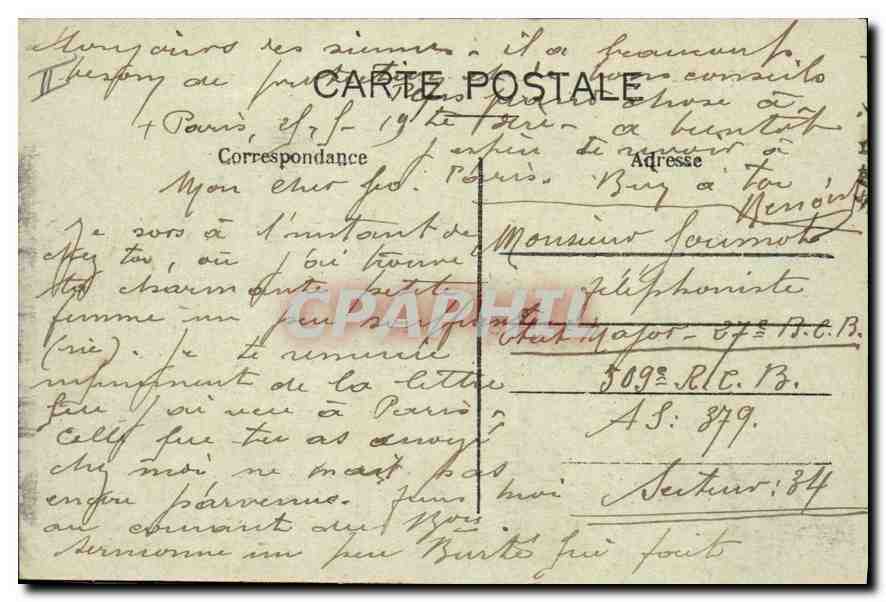 toujours des siennes. il a beaucoup
besoin de tes bons conseils
CARTE POSTALE
pas grand chose à
+ Paris, 19 te dire. a bientôt
j'espère te revoir à
Correspondance
Adresse
Paris. Bien à toi
Mon cher
Je sors à l'instant de
chez toi, où j'ai trouvé
ta charmante petite
femme un peu
(rie). Je te remercie
infiniment de la lettre
que j'ai reçu à Paris.
Celle que tu as envoyé
chez moi ne m'est pas
encore parvenue. Tiens moi
au courant du Bois.
Sermonne un peu qui fait
Monsieur
Téléphoniste
Etat Major - 27e B.C.B.
509e R.C.B.
AS: 379.
Secteur: 34
CPAPHIL